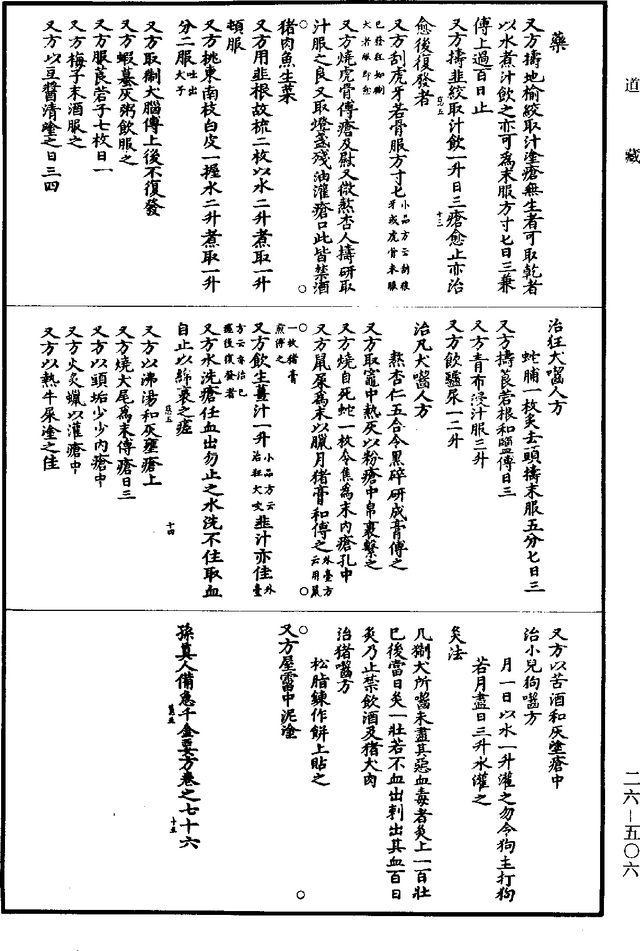 道藏
藥
又方擣地榆絞取汁塗瘡無生者可取乾者
以水煮汁飲之亦可為末服方寸七日三兼
傅上過百日止
又方擣韭絞取汁飲一升日三瘡愈止亦治
愈後復發者
又方刮虎牙若骨服方寸七小品方云刮狼牙或虎骨末服
已發狂如猘犬者服即愈
又方燒虎骨傅瘡及尉又微熬杏人擣研取
汁服之良又取燈盞殘油灌瘡口此皆禁酒
猪肉魚生菜
又方用韭根故梳二枚以水二升煮取一升
頓服
又方桃東南枝白皮一握水二升煮取一升
分二服吐出犬子
又方取猘犬腦傅上後不復發
又方蝦蟇灰粥飲服之
又方服莨菪子七枚日一
又方梅子末酒服之
又方以豆醬清塗之日三四
治狂犬嚙人方
蛇脯一枚炙去頭擣末服五分七日三
又方擣莨菪根和鹽傅日三
又方青布浸汁服三升
又方飲驢尿一二升
治凡犬嚙人方
熬杏仁五合令黑碎研成膏傅之
又方取竈中熱灰以粉瘡中帛裹繫之
又方燒自死蛇一枚令焦為末內瘡孔中
又方鼠屎為末以臘月猪膏和傅之外臺方云用鼠
一枚猪膏煎傅之
又方飲生薑汁一升小品方云治狂犬咬韭汁亦佳外臺
方云亦治已瘥後復發者
又方水洗瘡任血出勿止之水洗不住取血
自止以綿裹之瘥
又方以沸湯和灰壅瘡上
又方燒犬尾為末傅瘡日三
又方以頭垢少少內瘡中
又方火炙蠟以灌瘡中
又方以熱牛屎塗之佳
又方以苦酒和灰塗瘡中
治小兒狗嚙方
月一日以水一升灌之勿令狗主打狗
若月盡日三升水灌之
灸法
凡猘犬所嚙未盡其惡血毒者灸上一百壯
已後當日灸一壯若不血出刺出其血百日
灸乃止禁飲酒及猪犬肉
治猪嚙方
松脂鍊作餅上貼之
又方屋霤中泥塗
孫真人備急千金要方卷之七十六
二六—五〇六